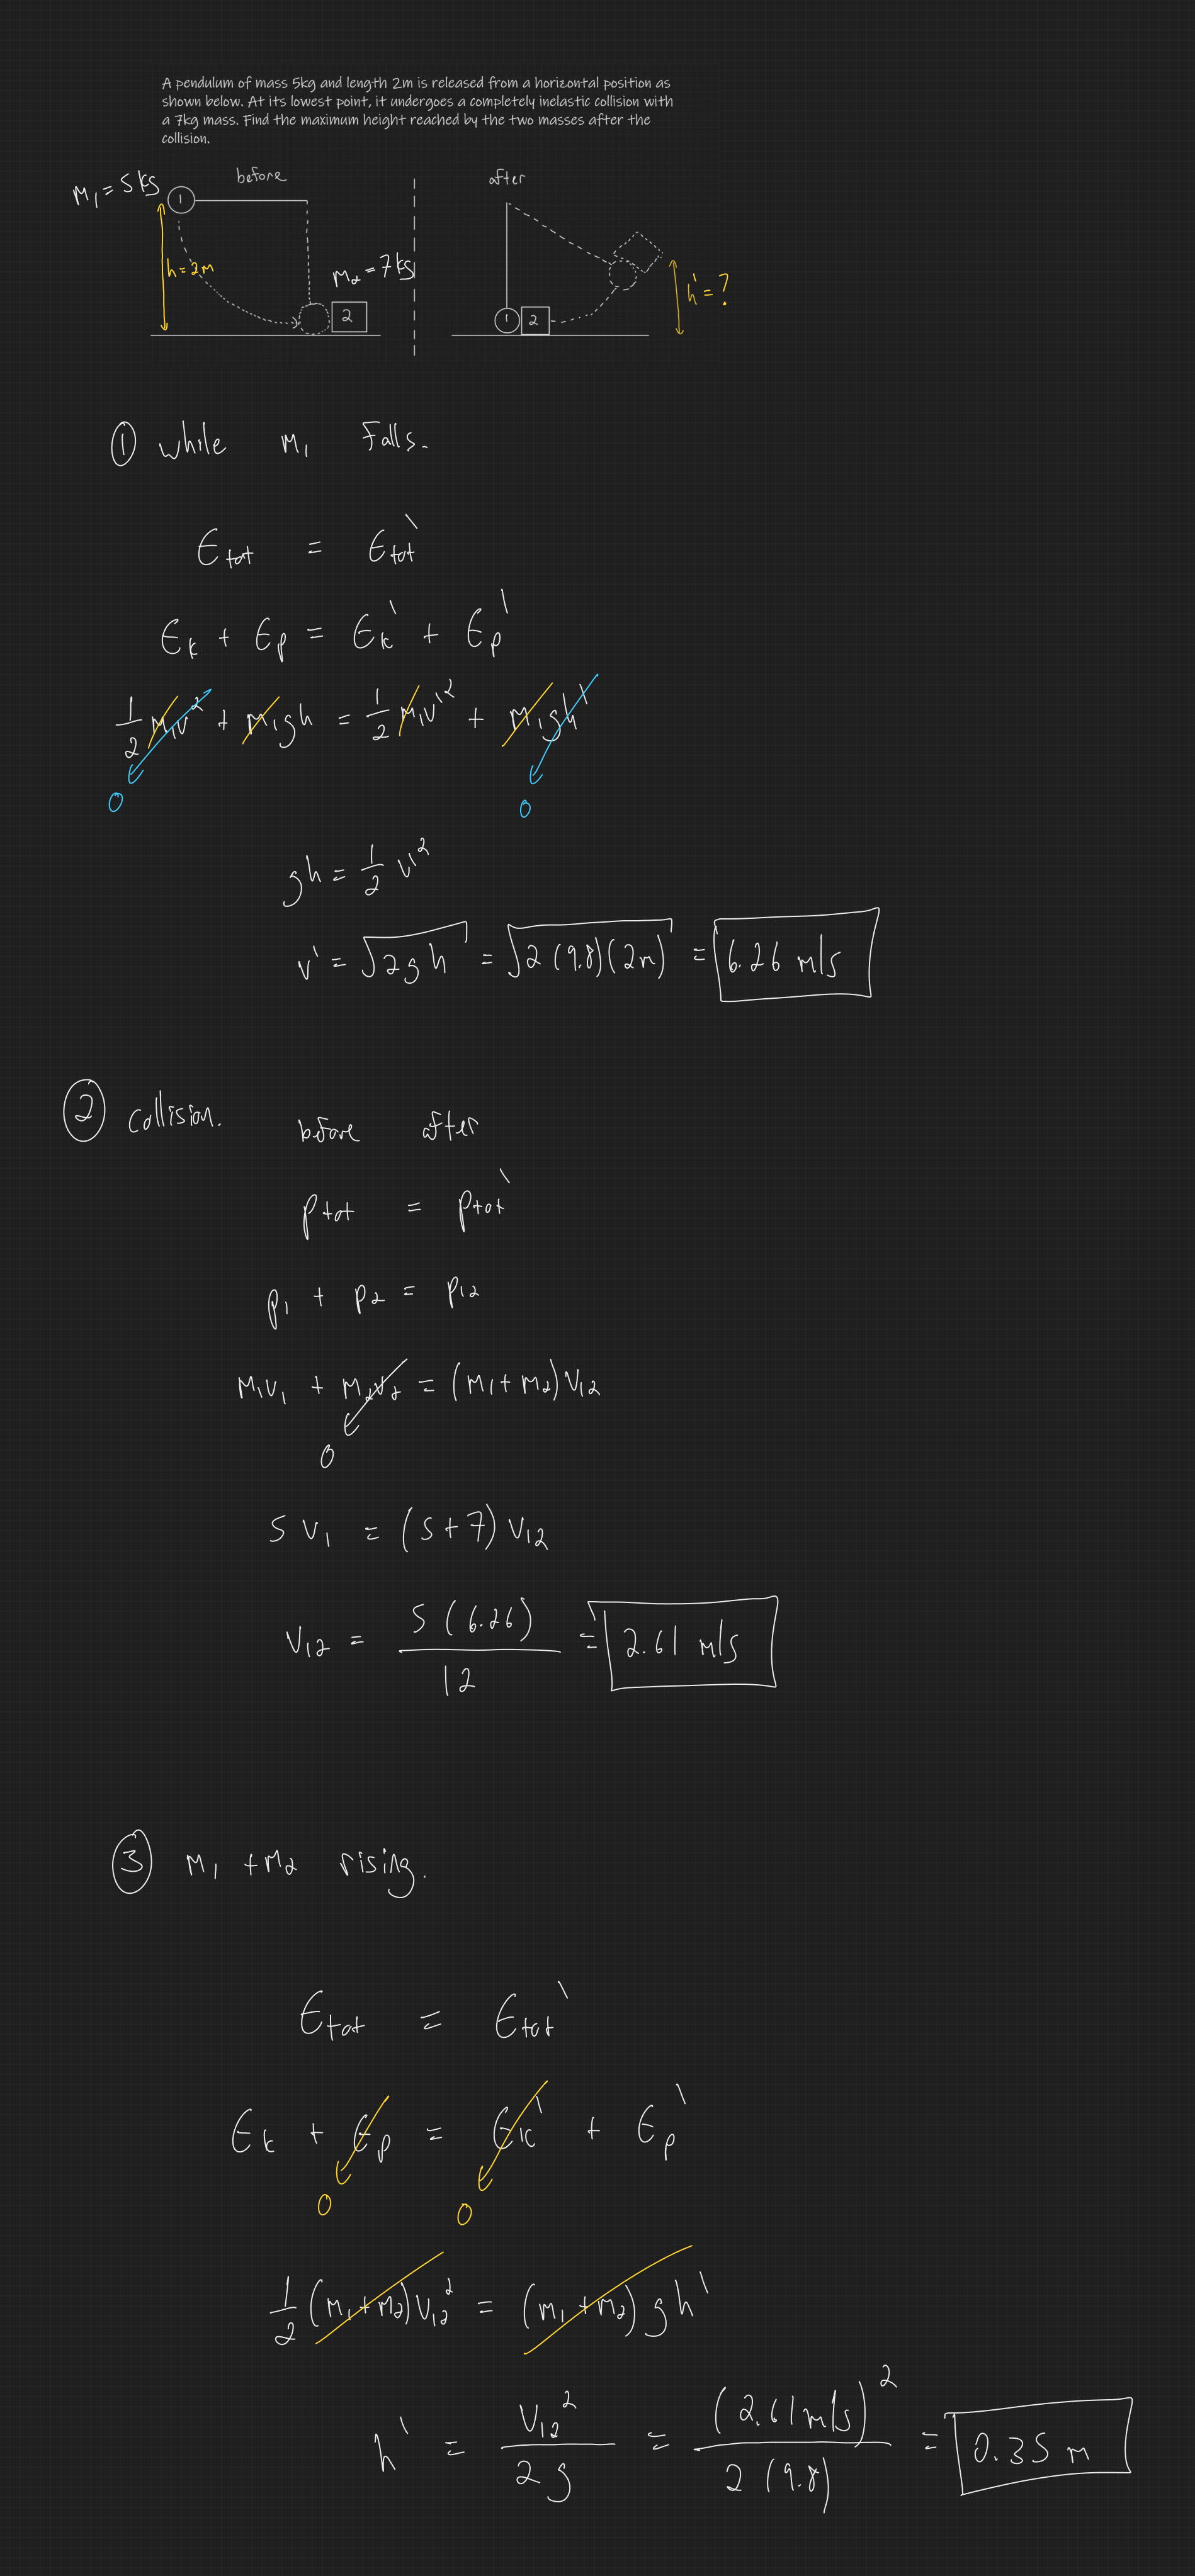 A pendulum of mass 5kg and length 2m is released from a horizontal position as
shown below. At its lowest point, it undergoes a completely inelastic collision with
a 7kg mass. Find the maximum height reached by the two masses after the
collision.
before
after
m₁ = 5 kg
1
h = 2m
m₂ = 7 kg
2
1
2
h' = ?
① while m₁ falls.
E_tot = E_tot'
E_k + E_p = E_k' + E_p'
1/2 m₁v² + m₁gh = 1/2 m₁v'² + m₁gh'
0
0
gh = 1/2 v'²
v' = √2gh = √2(9.8)(2m) = 6.26 m/s
② Collision.
before after
p_tot = p_tot'
p₁ + p₂ = p₁₂
m₁v₁ + m₂v₂ = (m₁+m₂)v₁₂
0
5 v₁ = (5+7) v₁₂
v₁₂ = 5(6.26)/12 = 2.61 m/s
③ m₁ + m₂ rising.
E_tot = E_tot'
E_k + E_p = E_k' + E_p'
0
0
1/2 (m₁+m₂)v₁₂² = (m₁+m₂)gh'
h' = v₁₂²/2g = (2.61 m/s)²/2(9.8) = 0.35 m